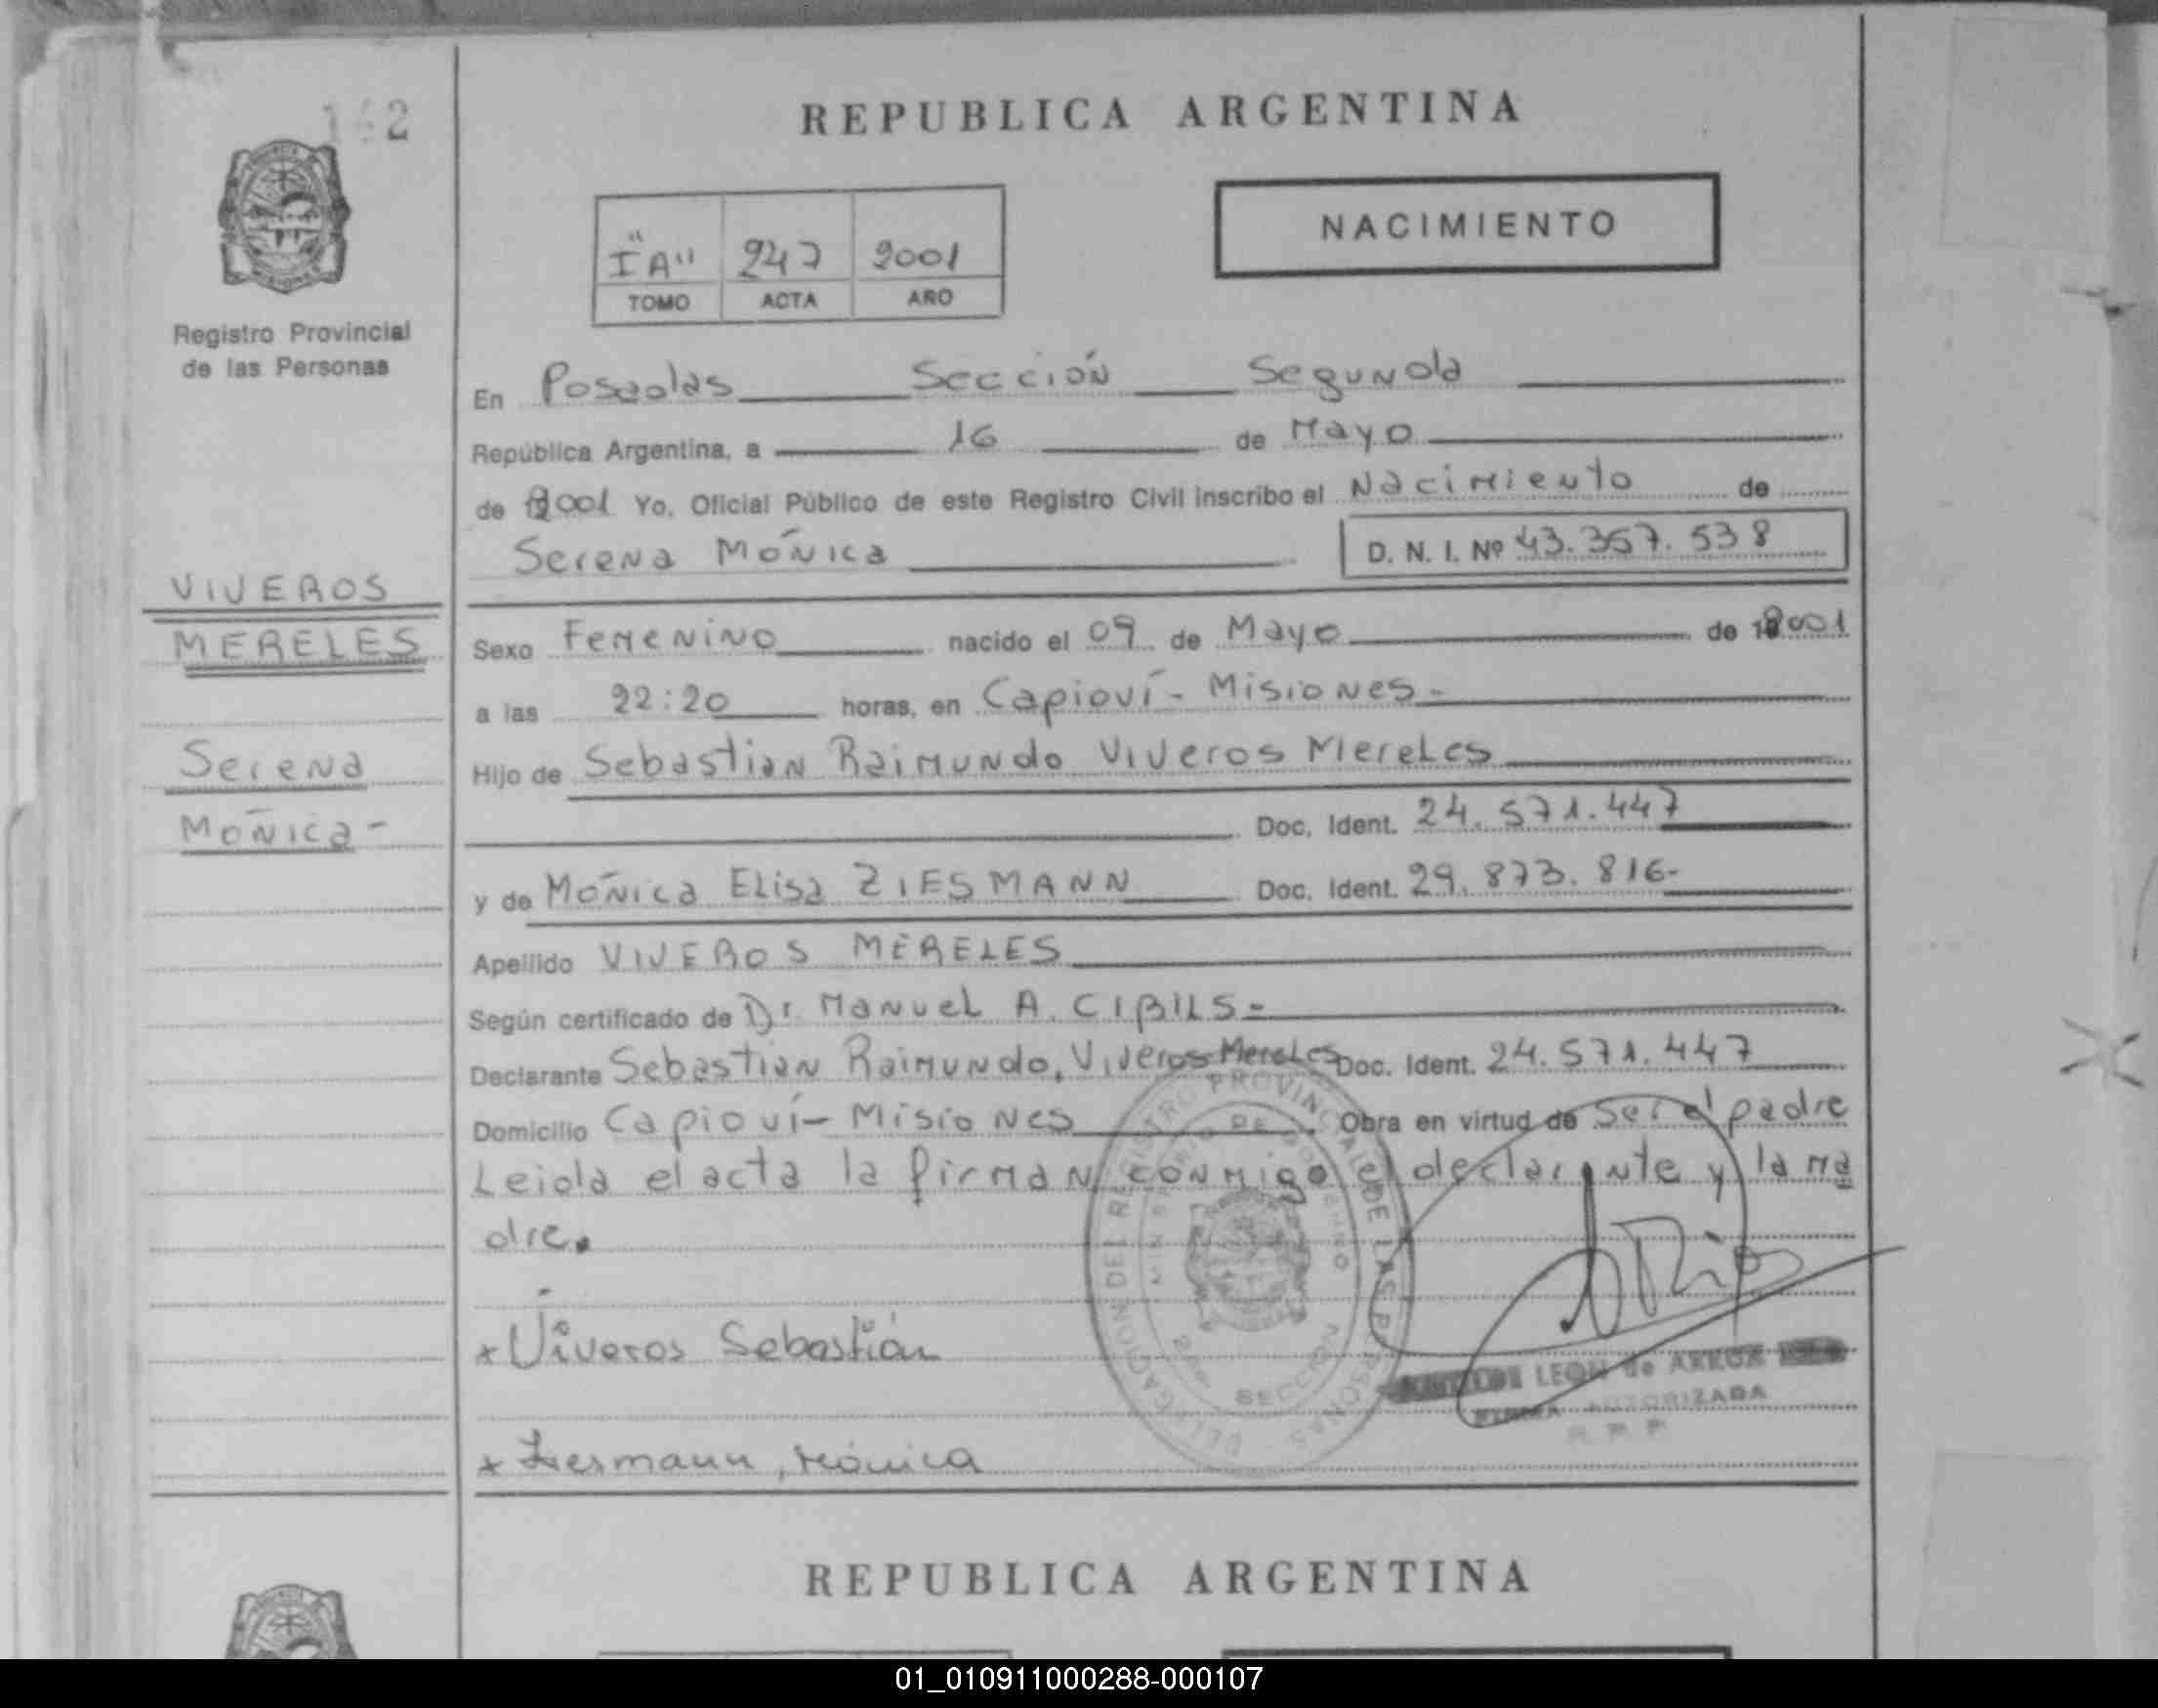 REPUBLICA ARGENTINA
NACIMIENTO
I "A" 247 2001
TOMO ACTA AÑO
Registro Provincial
de las Personas
En Posadas Sección Segunda
República Argentina, a 16 de Mayo
de 2001 Yo, Oficial Público de este Registro Civil inscribo el Nacimiento de
Serena Mónica D. N. I. Nº 43.367.538
VIVEROS
MERELES
Serena
Mónica-
Sexo Femenino nacido el 09 de Mayo de 2001
a las 22:20 horas, en Capioví - Misiones-
Hijo de Sebastian Raimundo Viveros Mereles
Doc. Ident. 24.571.447
y de Mónica Elisa ZIESMANN Doc. Ident. 29.873.816-
Apellido VIVEROS MERELES
Según certificado de Dr. Manuel A. CIBILS-
Declarante Sebastian Raimundo, Viveros Mereles Doc. Ident. 24.571.447
Domicilio Capioví - Misiones Obra en virtud de ser el padre
Leida el acta la firman conmigo el declarante y la ma
dre.
DELEGACION DEL REGISTRO PROVINCIAL DE LAS PERSONAS
MINISTERIO DE GOBIERNO
2da SECCION
x Viveros Sebastián
LEON de
FIRMA AUTORIZADA
x Ziesmann, Mónica
REPUBLICA ARGENTINA
01_010911000288-000107